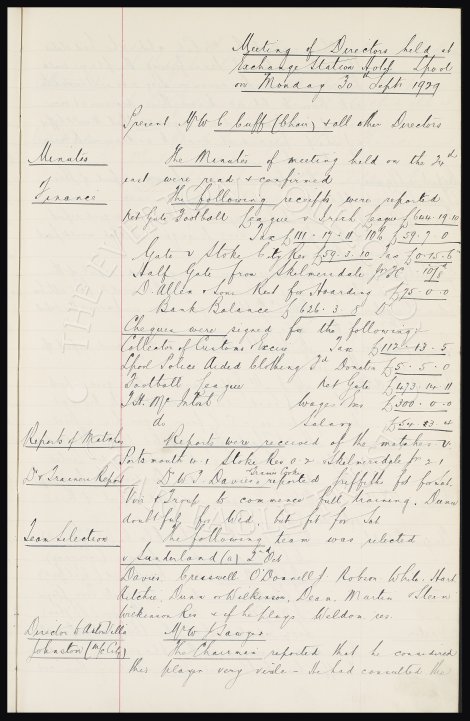 Meeting of Directors held at
Exchange Station Hotel Lpool
on Monday 30th Septr 1929
Present Mr W C Cuff (Chair) & all other Directors
Minutes
The Minutes of meeting held on the 24th
inst were read & confirmed
Finance
The following receipts were reported
Net Gate Football League v Irish League £644.19.10
Tax £111-17-11 10% £59.7.0
Gate v Stoke City Res £59.3.10 Tax £0-15-6
Half Gate from Skelmersdale
D. Allen & Sons Rent for Hoarding £75-0-0
Bank Balance £626.3.8
Cheques were signed for the following
Collector of Customs Excise Tax £112-13-5
Lpool Police Aided Clothing Fd Donation £5-5-0
Football League Net Gate £473-14-11
T.H. McIntosh Wages £300-0-0
do Salary
Reports of Matches
Reports were received of the matches v.
Portsmouth Stoke Res 0-2 & Skelmersdale 2-1
Dr & Trainers Report
Dr W.P. Davies & Trainer Cooke reported Griffiths
& Troup to commence full training. Dunn
doubtful for Wed. but fit for Sat
Team Selection
The following team was selected
v Sunderland (a) 2nd Oct
Davies, Cresswell O'Donnell, Robson White, Hart
Ritchie, Dunn or Wilkinson, Dean, Martin & Stein
Wilkinson Res & if he plays Weldon res.
Director to Aston Villa
Mr W J Sawyer
Johnston (M/c City)
The Chairman reported that he considered
this player very — he had consulted the